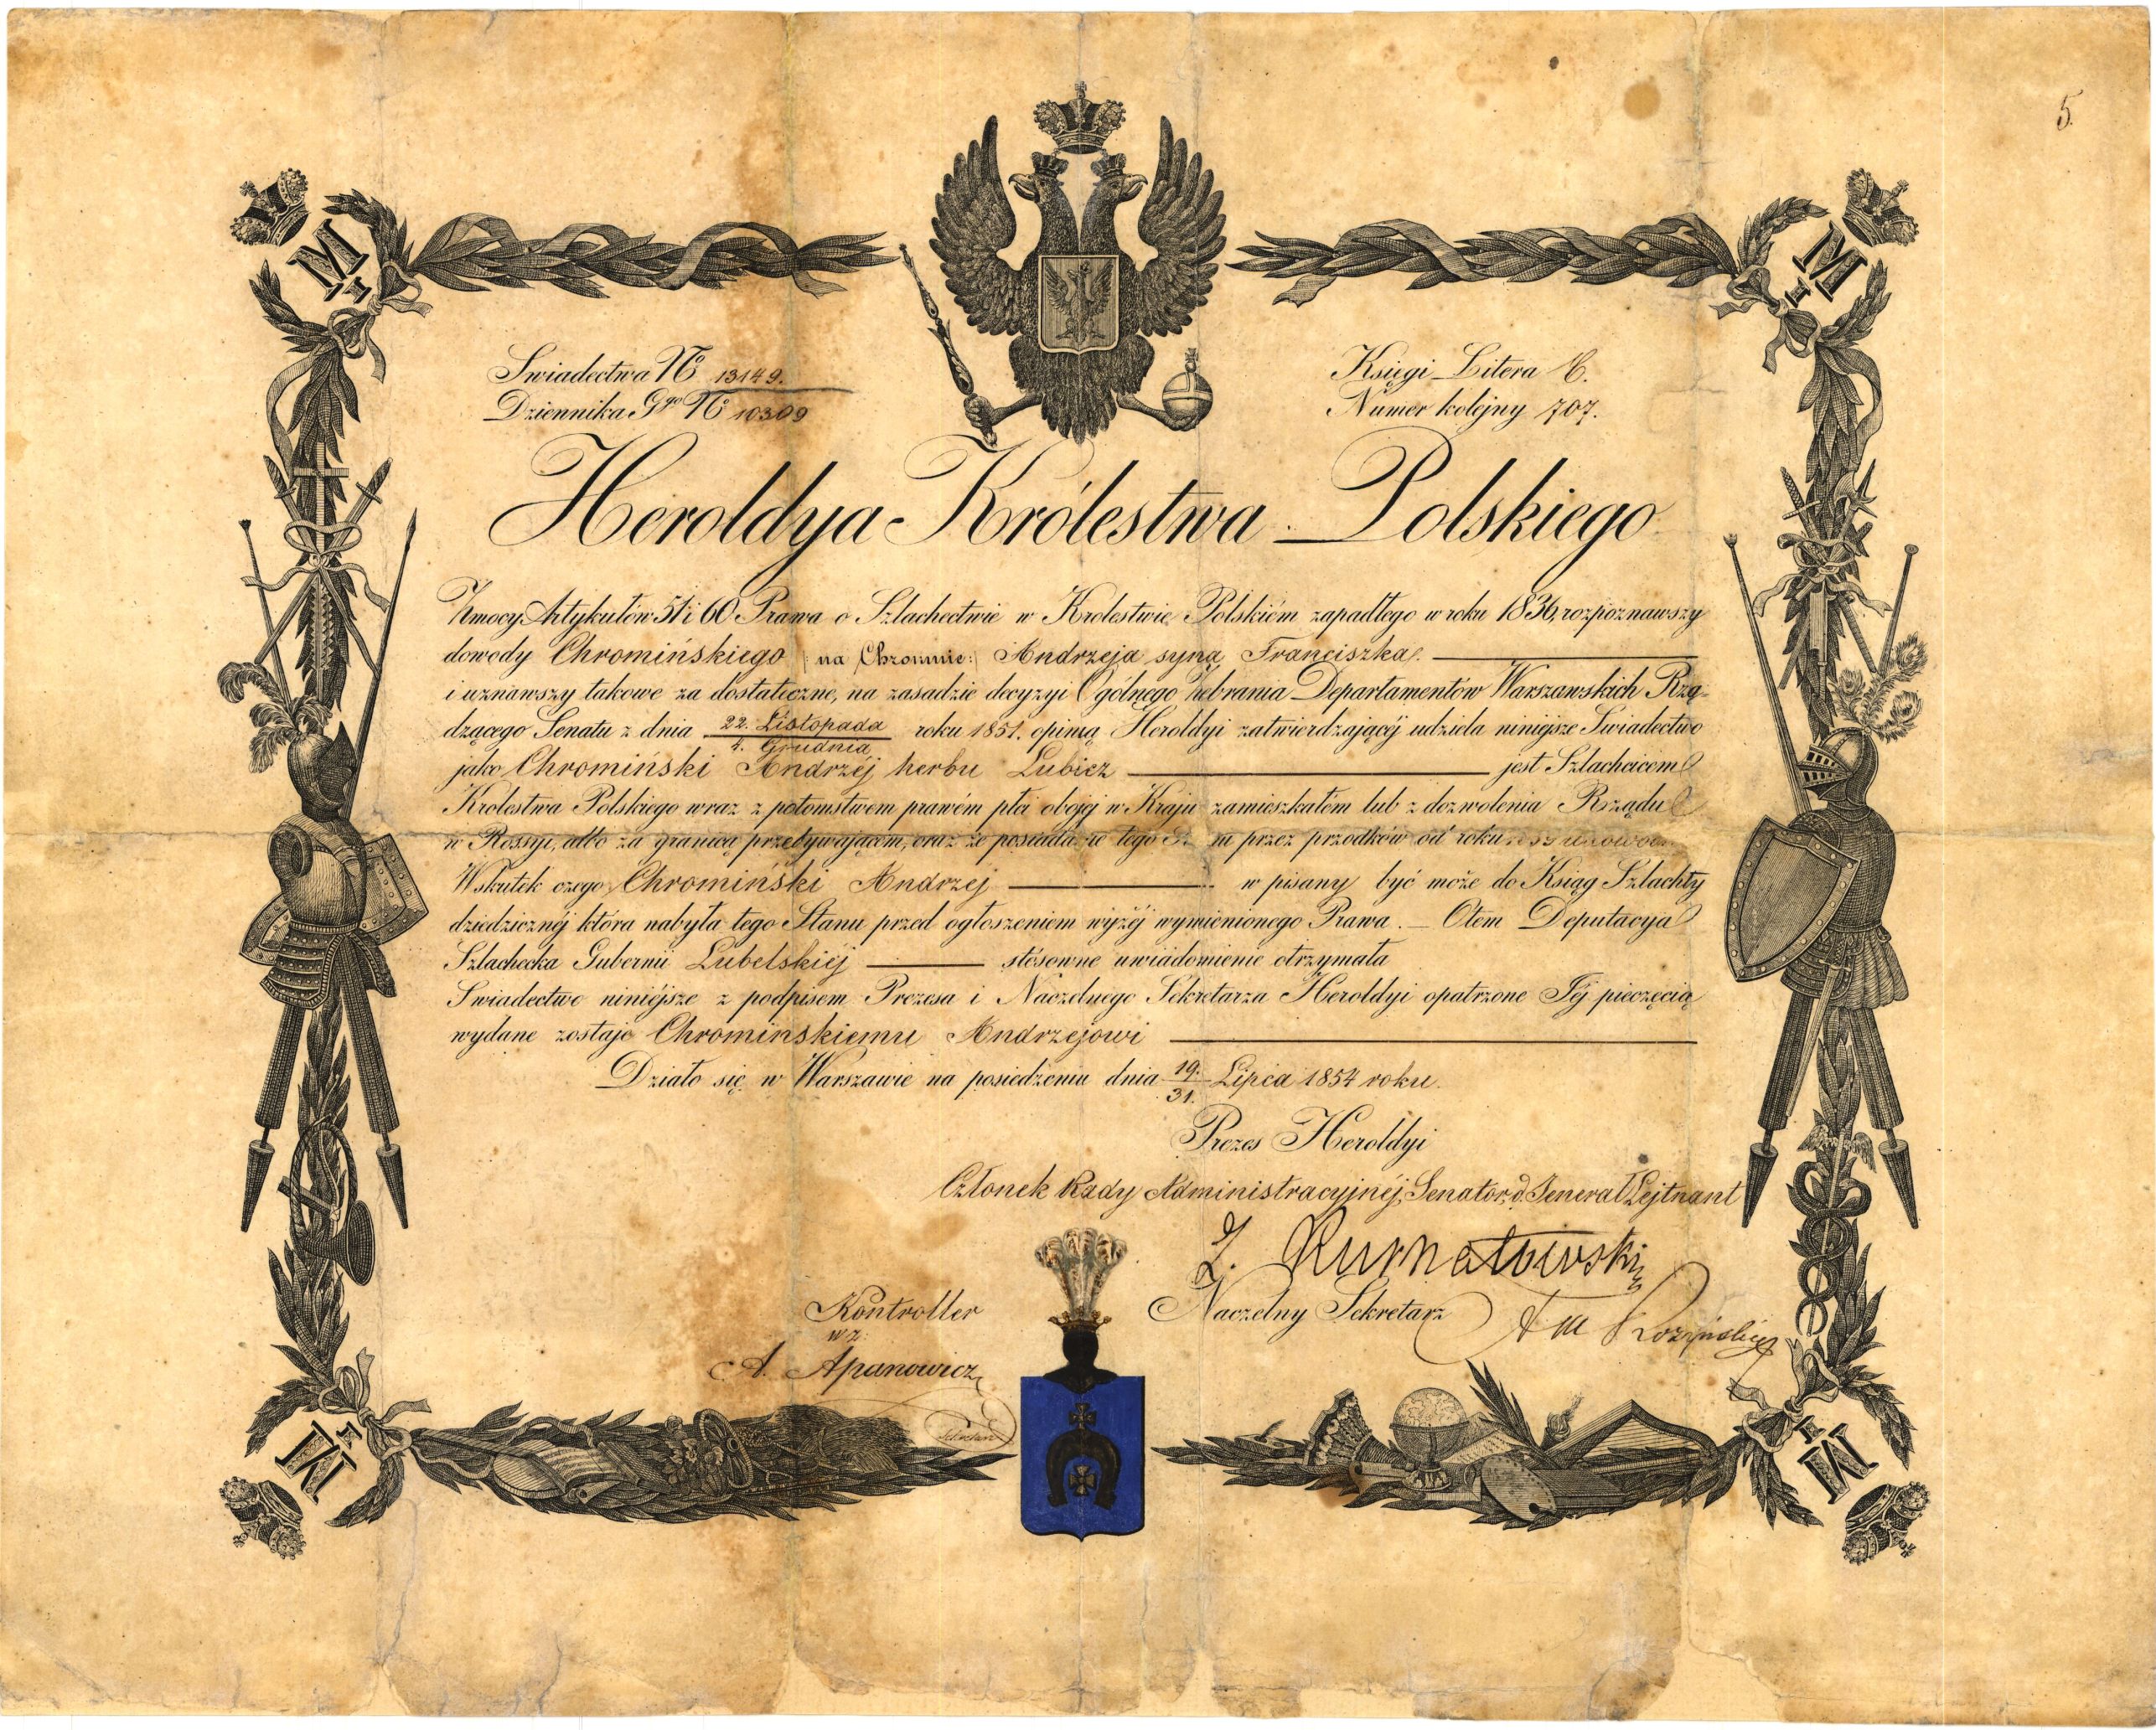 5.
M I
M I
Swiadectwa No 13149.
Dziennika Ggo No 10309
Księgi Litera C.
Numer kolejny 707.
Heroldya Królestwa Polskiego
Zmocy Artykułów 51 i 60 Prawa o Szlachectwie w Krolestwie Polskiém zapadłego w roku 1836, rozpoznawszy
dowody Chromińskiego /: na Chromnie :/ Andrzeja syna Franciszka.
i uznawszy takowe za dostateczne, na zasadzie decyzyi Ogólnego Zebrania Departamentów Warszawskich Rzą-
dzącego Senatu z dnia 22. Listopada / 4. Grudnia roku 1851. opinią Heroldyi zatwierdzającéj udziela niniejsze Swiadectwo
jako Chromiński Andrzéj herbu Lubicz jest Szlachcicem
Krolestwa Polskiego wraz z potomstwem prawém płci obojéj w Kraju zamieszkałem lub z dozwolenia Rządu
w Rossyi, albo za granicą przebywającem, oraz że posiada tego przez przodków od roku
Wskutek czego Chromiński Andrzej w pisany być może do Ksiąg Szlachty
dziedzicznéj która nabyła tego Stanu przed ogłoszeniem wyżéj wymienionego Prawa. – Otem Deputacya
Szlachecka Gubernii Lubelskiéj stósowne uwiadomienie otrzymała
Swiadectwo niniéjsze z podpisem Prezesa i Naczelnego Sekretarza Heroldyi opatrzone Jéj pieczęcią
wydane zostaje Chromińskiemu Andrzejowi
Działo się w Warszawie na posiedzeniu dnia 19./31. Lipca 1854 roku.
Prezes Heroldyi
Członek Rady Administracyjnéj, Senator, Jenerał Lejtnant
Kurnatowski
Naczelny Sekretarz
Kontroller
wz:
A. Apanowicz
M I
M I